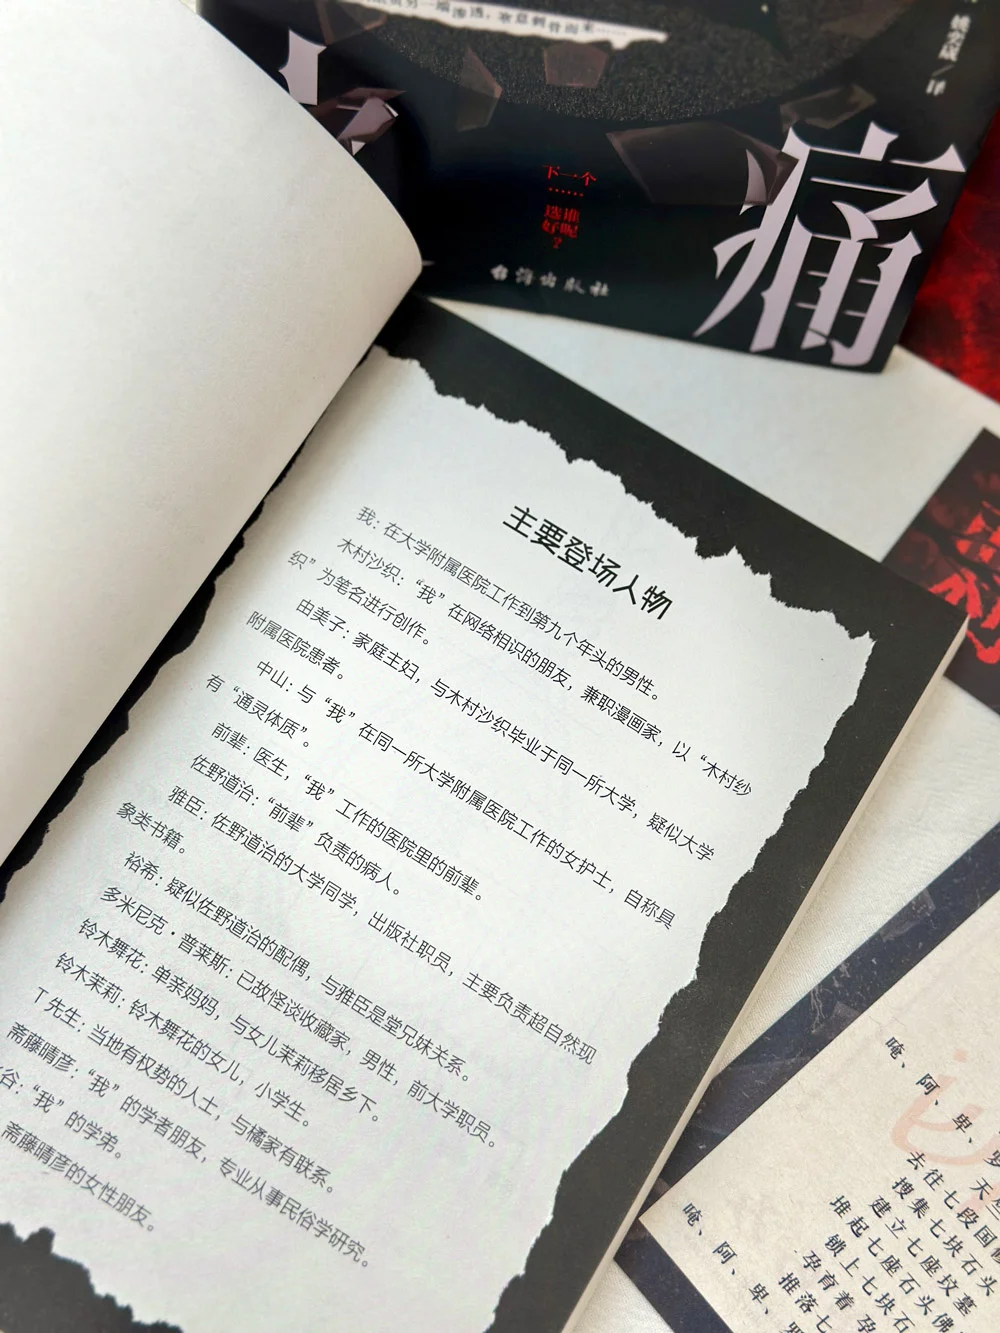 寒意刺骨而来……
译
痛
下一个
……
选谁
好呢
?
台海出版社
主要登场人物
我：在大学附属医院工作到第九个年头的男性。
木村沙织：“我”在网络相识的朋友，兼职漫画家，以“木村纱
织”为笔名进行创作。
由美子：家庭主妇，与木村沙织毕业于同一所大学，疑似大学
附属医院患者。
中山：与“我”在同一所大学附属医院工作的女护士，自称具
有“通灵体质”。
前辈：医生，“我”工作的医院里的前辈。
佐野道治：“前辈”负责的病人。
雅臣：佐野道治的大学同学，出版社职员，主要负责超自然现
象类书籍。
裕希：疑似佐野道治的配偶，与雅臣是堂兄妹关系。
多米尼克·普莱斯：已故怪谈收藏家，男性，前大学职员。
铃木舞花：单亲妈妈，与女儿茉莉移居乡下。
铃木茉莉：铃木舞花的女儿，小学生。
T先生：当地有权势的人士，与橘家有联系。
斋藤晴彦：“我”的学者朋友，专业从事民俗学研究。
谷：“我”的学弟。
斋藤晴彦的女性朋友。
唵、阿、卑、罗
天
去往七段国
搜集七块石头
建立七座坟墓
堆起七座石头佛
锁上七块石
孕育着 孕
推落七
唵、阿、卑、罗